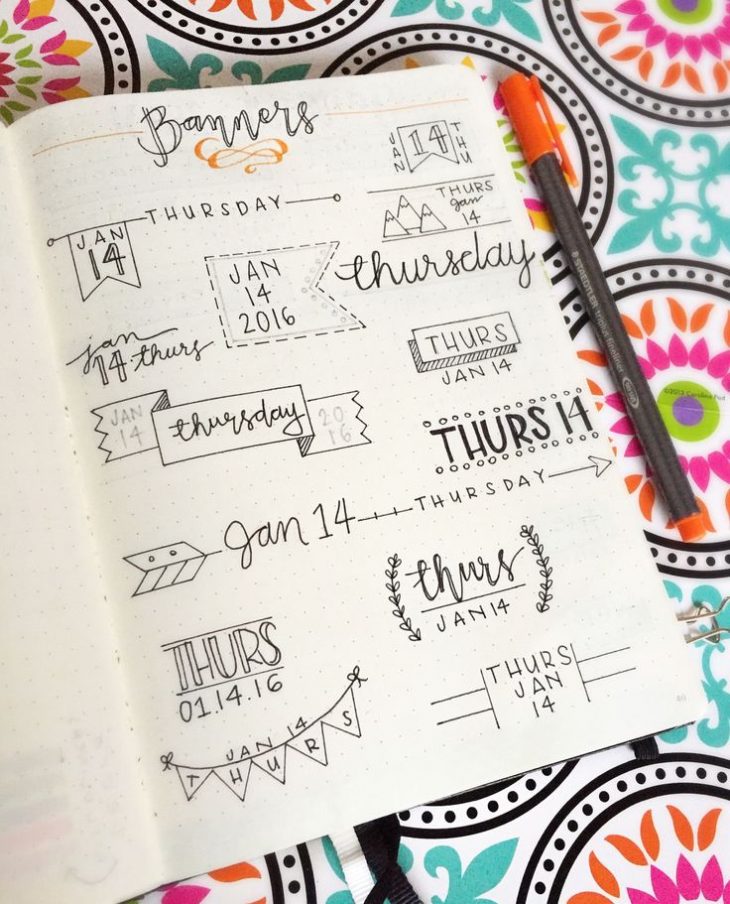 Banners
JAN
14
THU
THURSDAY
JAN
14
THURS
Jan
14
JAN
14
2016
thursday
jan
14 thurs
THURS
JAN 14
JAN
14
thursday
20
16
THURS 14
Jan 14
THURSDAY
thurs
JAN 14
THURS
01.14.16
THURS
JAN
14
JAN 14
THURS
STAEDTLER triplus fineliner